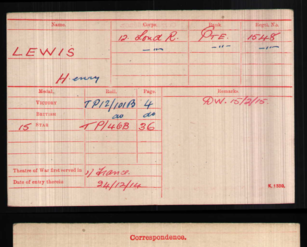 Name. Corps. Rank. Regtl. No.
LEWIS 12 Lond R. Pte. 1548
— " — — " — — " —
Henry
Medal. Roll. Page. Remarks.
VICTORY TP12/101B3 4 D.W. 15/2/15.
BRITISH do do
15 STAR TP/46B 36
Theatre of War first served in 1/ France
Date of entry therein 24/12/14
K. 1380.
Correspondence.